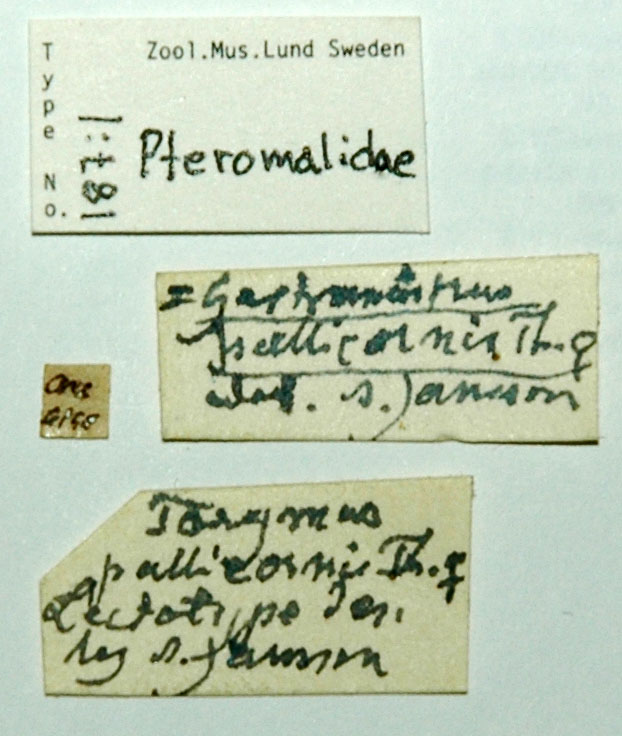 Type No.
1:781
Zool.Mus.Lund Sweden
Pteromalidae
= Gastrancistrus
pallicornis Th. ♀
det. S. Jansson
Torymus
pallicornis Th. ♀
Lectotype Des.
by S. Jansson